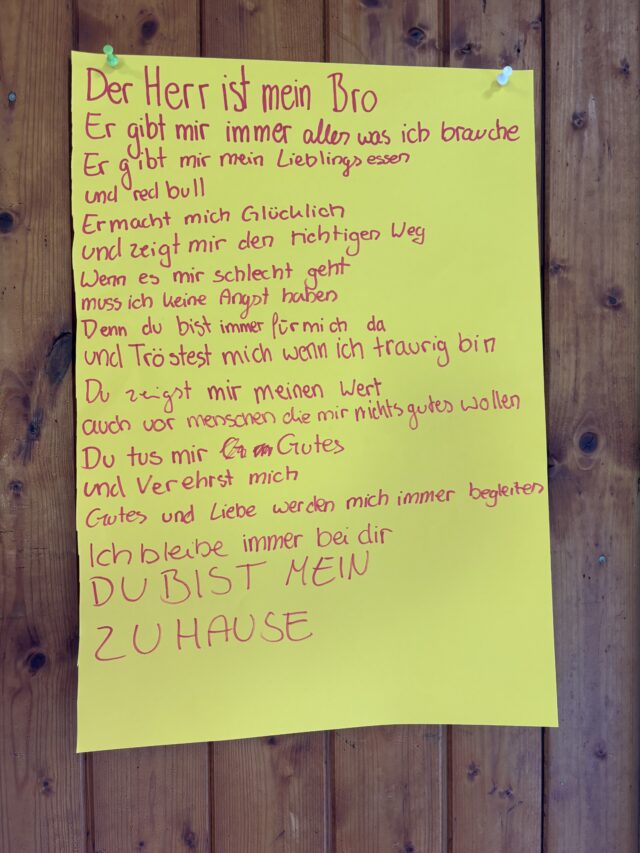 Der Herr ist mein Bro
Er gibt mir immer alles was ich brauche
Er gibt mir mein Lieblingsessen
und red bull
Er macht mich Glücklich
und zeigt mir den richtigen Weg
Wenn es mir schlecht geht
muss ich keine Angst haben
Denn du bist immer für mich da
und Tröstest mich wenn ich traurig bin
Du zeigst mir meinen Wert
auch vor menschen die mir nichts gutes wollen
Du tus mir Gutes
und Verehrst mich
Gutes und Liebe werden mich immer begleiten
Ich bleibe immer bei dir
DU BIST MEIN
ZUHAUSE